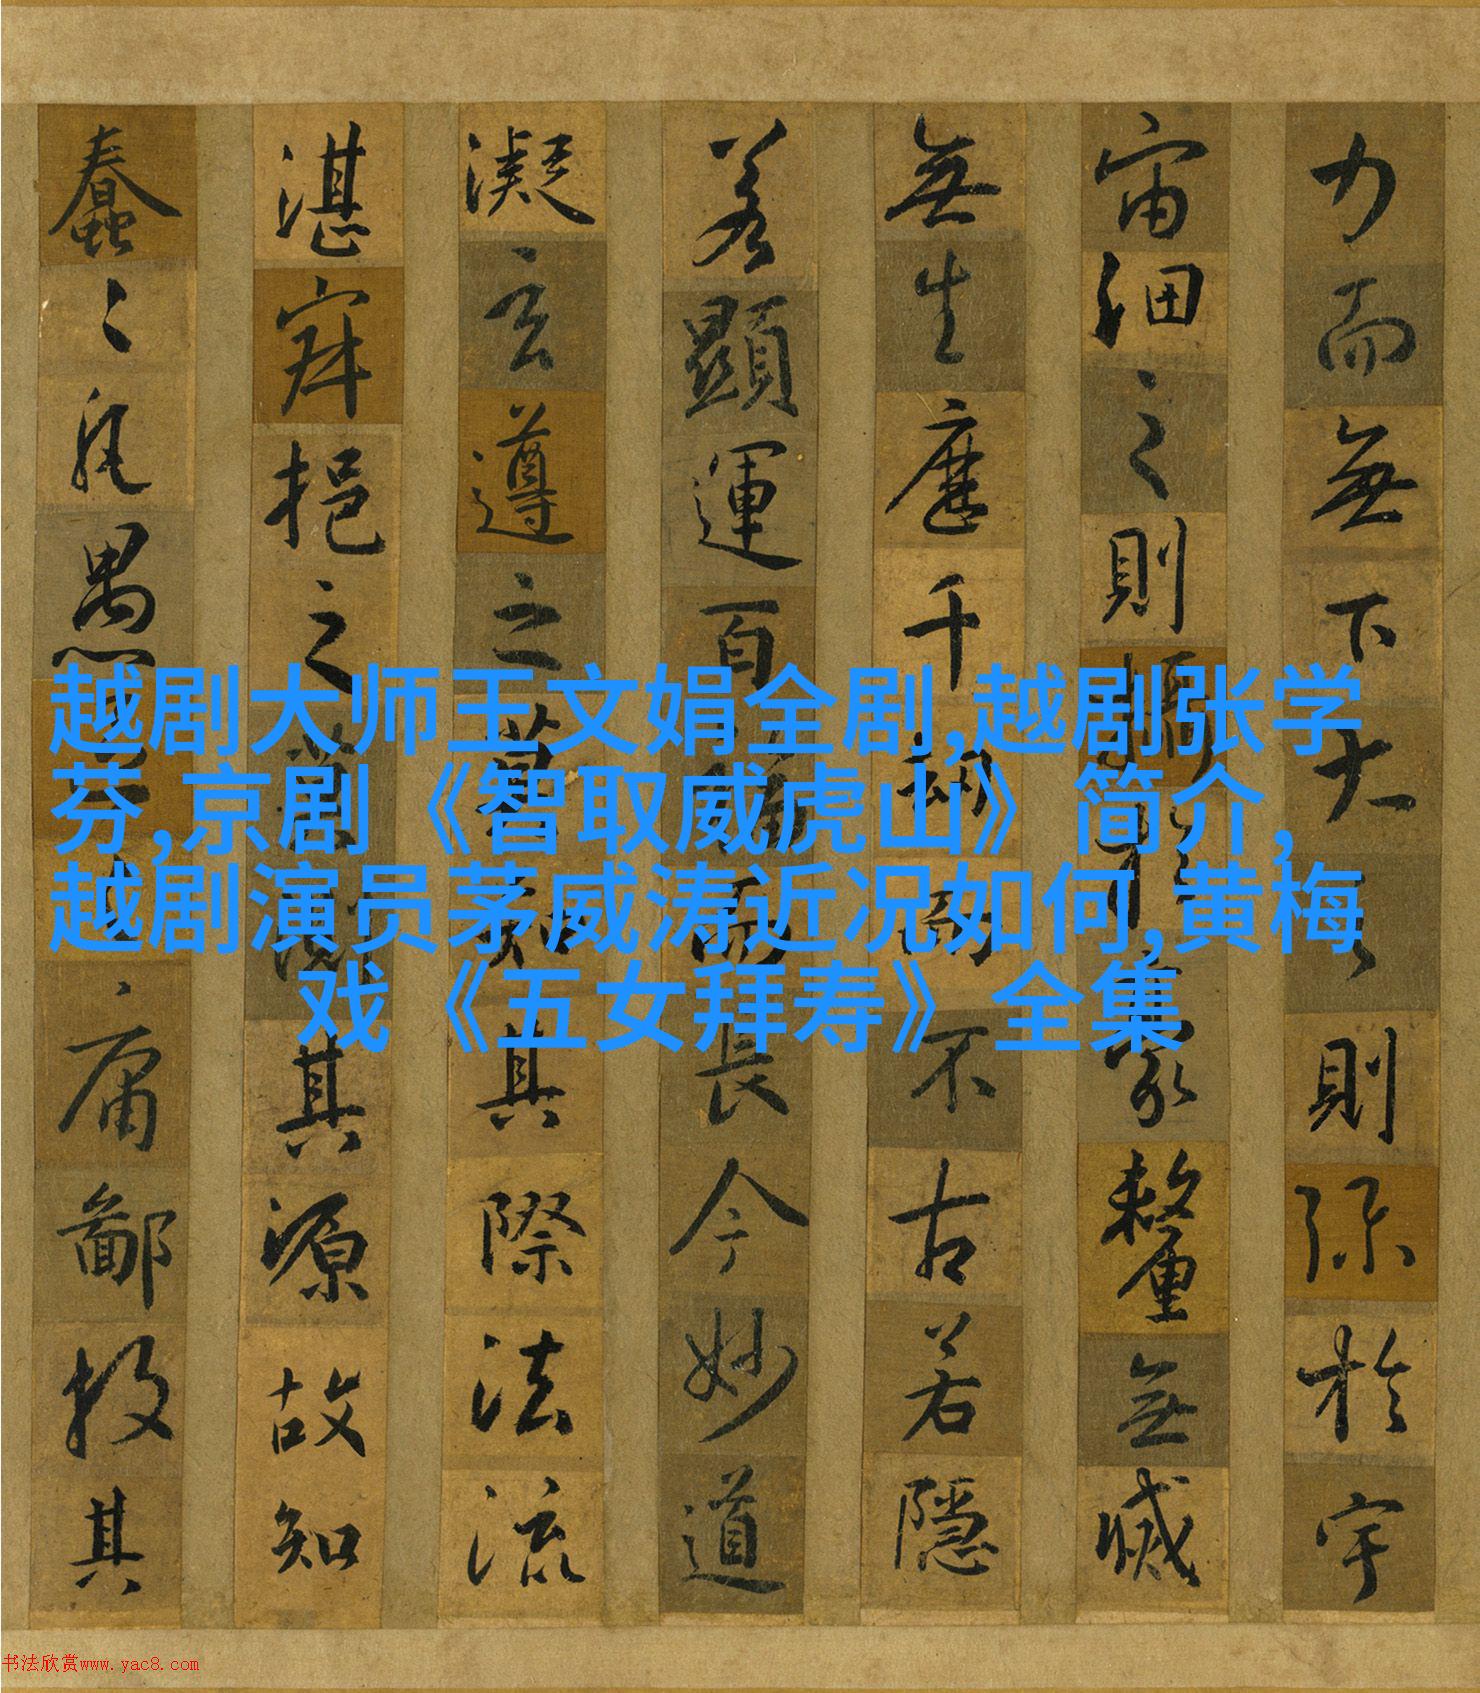 力而無下大之則彌於宇
宙細之則攝於毫釐無滅
無生歷千劫而不古若隱
若顯運百福而長今妙道
凝玄遵之莫知其際法流
湛寂挹之莫測其源故知
蠢〻凡愚區〻庸鄙投其
越剧大师王文娟全剧,越剧张学
芬,京剧《智取威虎山》简介,
越剧演员茅威涛近况如何,黄梅
戏《五女拜寿》全集
书法欣赏www.yac8.com